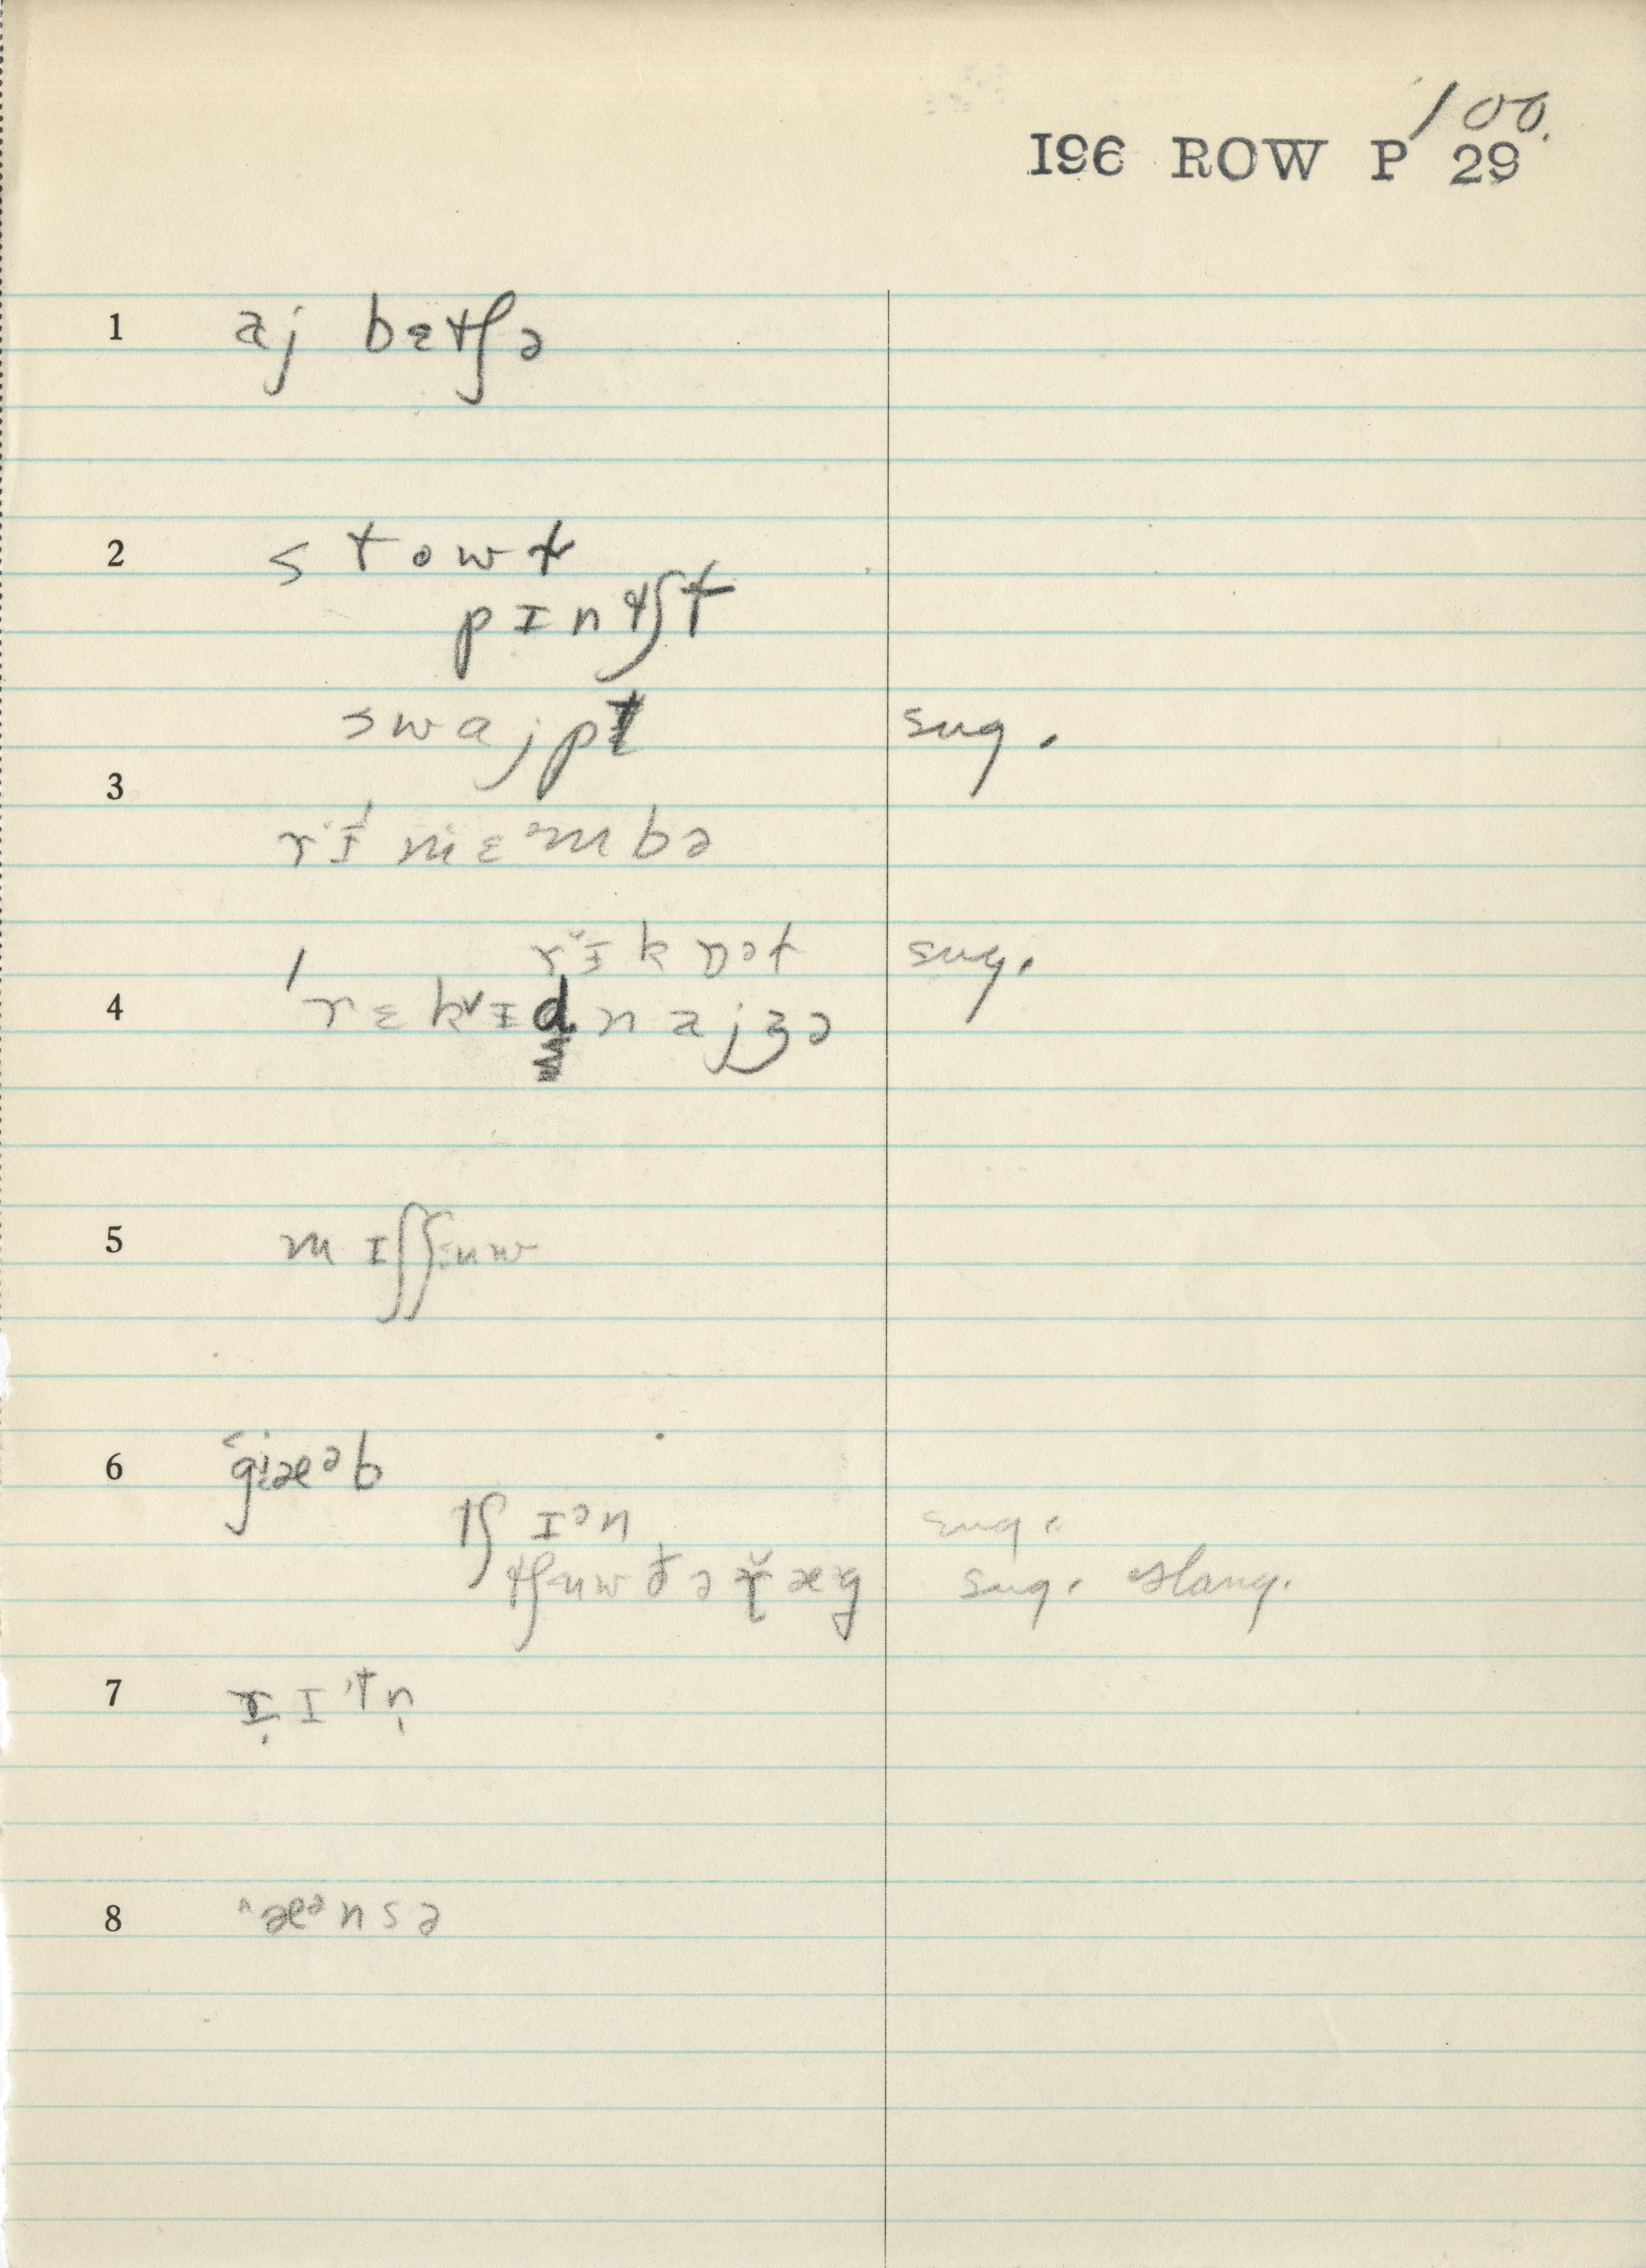 100.
I96 ROW P 29
1 aj bɛtʃə
2 stowt
pɪntʃt
swajpt sug.
3
rɪˈmɛmbə
rɪkɒət sug.
4 ˈrɛkɪdnajzə
5 mɪʃʃuw
6 græᵊb
tʃɪᵊn sug.
sug. slang.
7 rɪtn̩
8 æᵊnsə